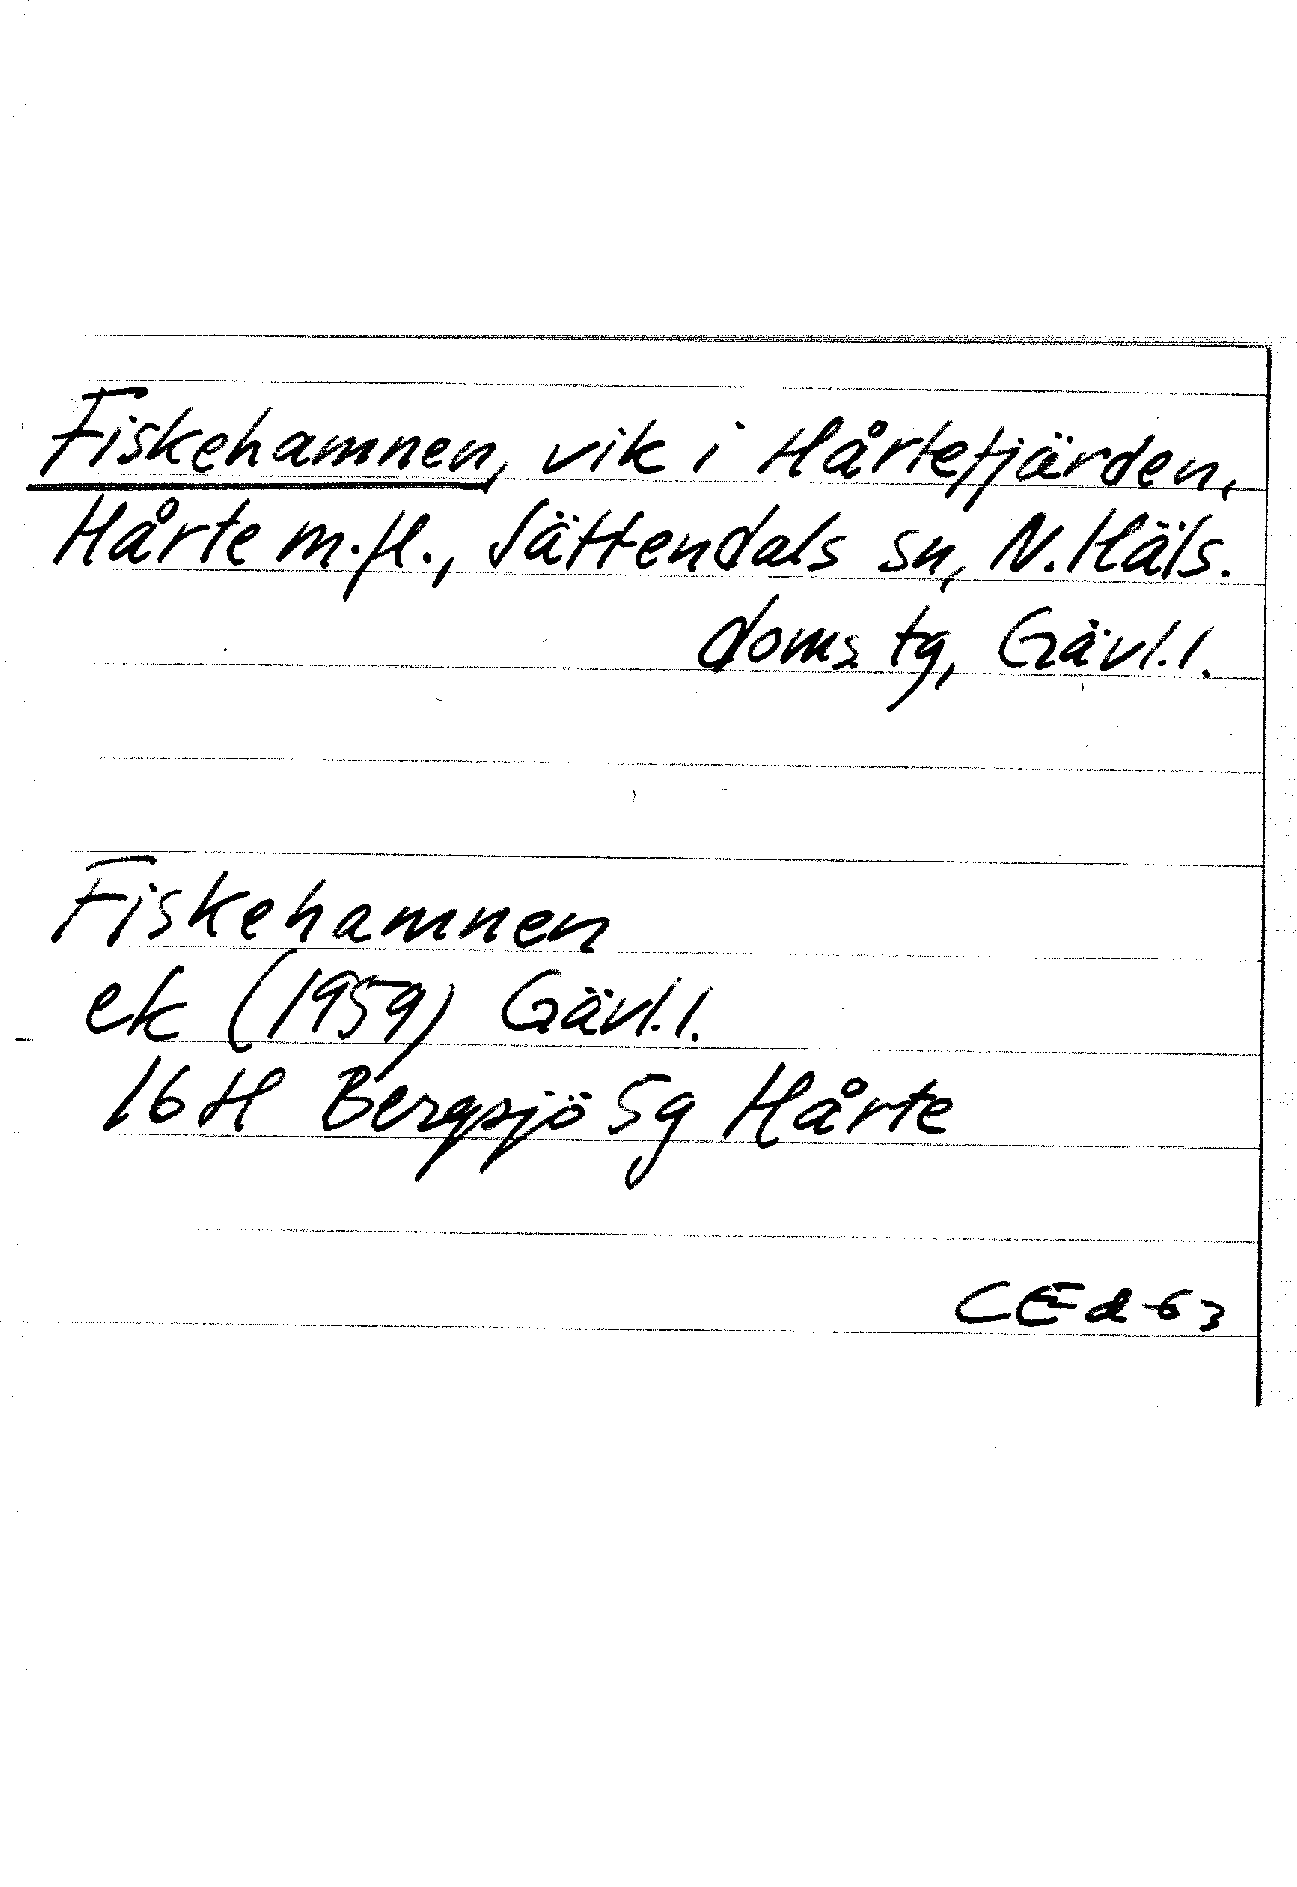 Fiskehamnen, vik i Hårtefjärden,
Hårte m.fl., Jättendals sn, N. Häls.
doms tg, Gävl.l.
Fiskehamnen
ek (1959) Gävl.l.
16H Bergsjö 5g Hårte
CEd -63